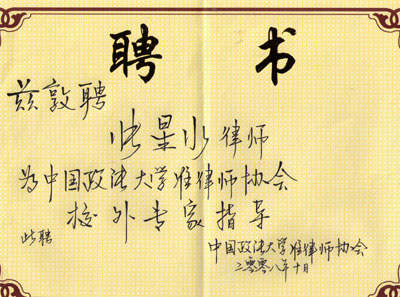 聘 书
兹敦聘
张星水律师
为中国政法大学准律师协会
校外专家指导
此聘
中国政法大学准律师协会
二零零八年十月